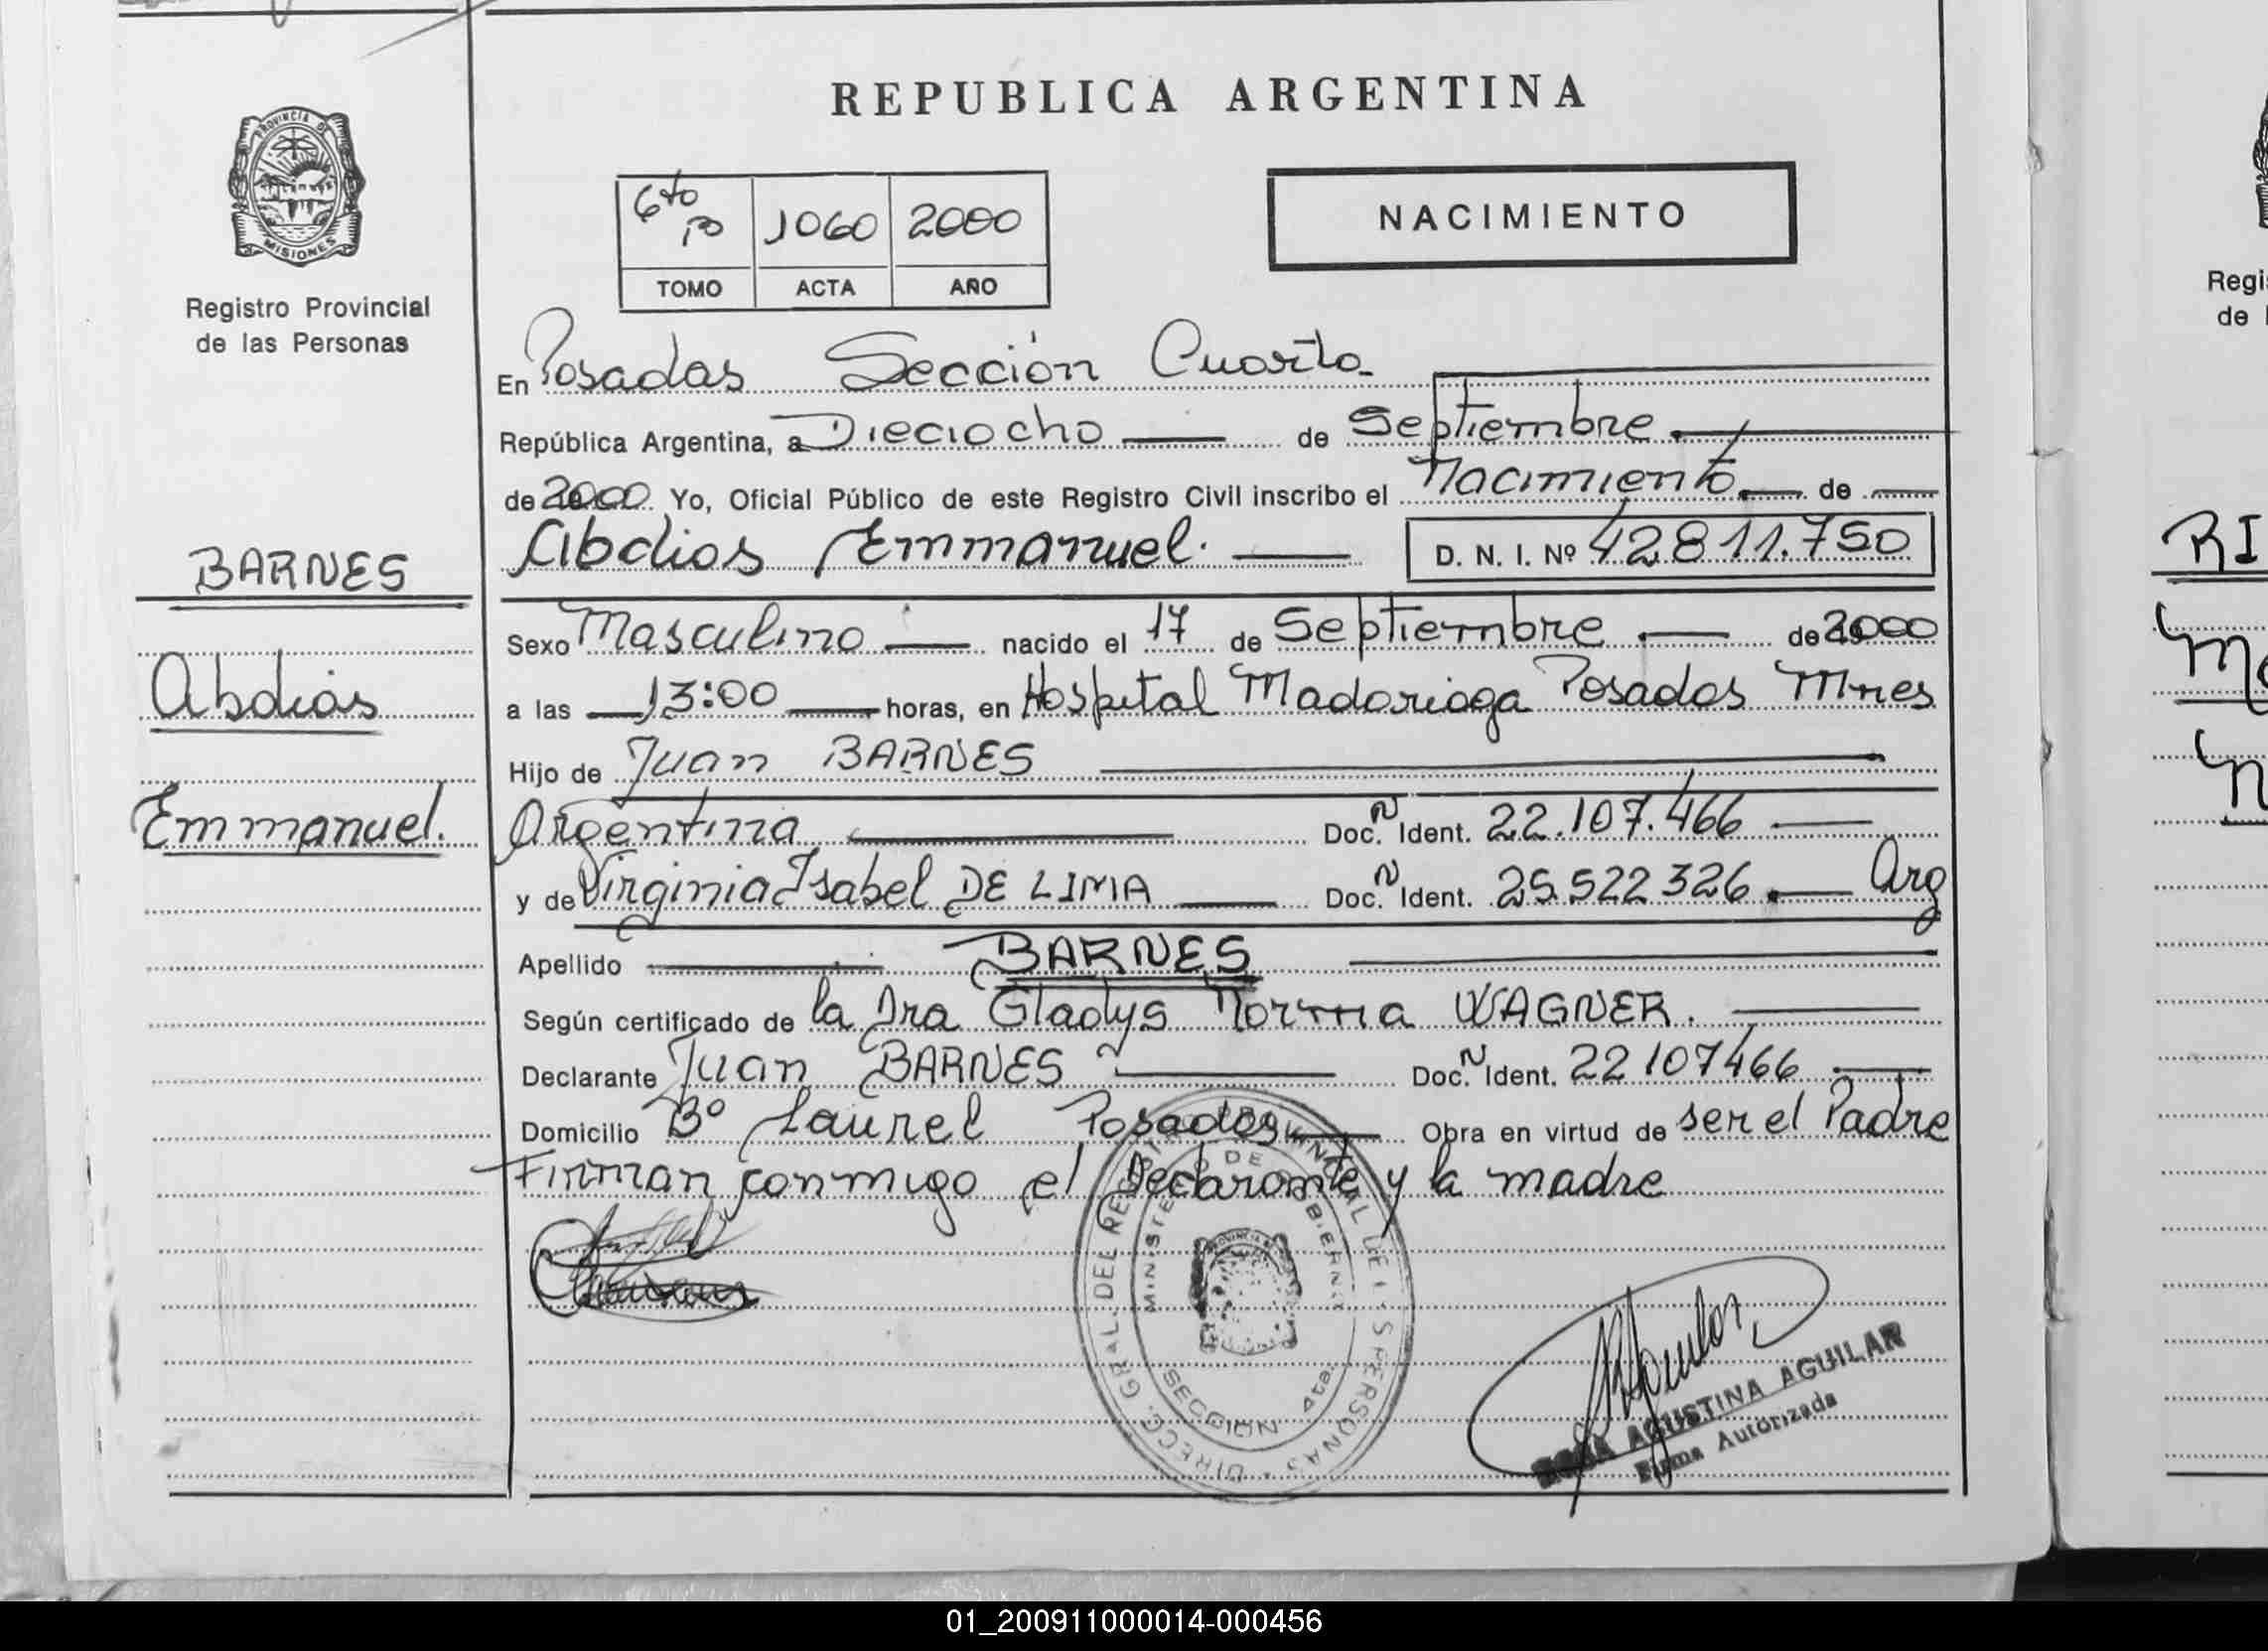 REPUBLICA ARGENTINA
PROVINCIA DE
MISIONES
Registro Provincial
de las Personas
6to
1060
2000
TOMO
ACTA
AÑO
NACIMIENTO
En Posadas Sección Cuarta
República Argentina, a Dieciocho de Septiembre
de 2000 Yo, Oficial Público de este Registro Civil inscribo el Nacimiento de
Abdias Emmanuel. D. N. I. Nº 42811.750
BARNES
Abdias
Emmanuel.
Sexo Masculino nacido el 17 de Septiembre de 2000
a las 13:00 horas, en Hospital Madariaga Posadas Mnes
Hijo de Juan BARNES
Argentina Doc. N Ident. 22.107.466
y de Virginia Isabel DE LIMA Doc. N Ident. 25.522 326. Arg
Apellido BARNES
Según certificado de la Dra Gladys Norma WAGNER.
Declarante Juan BARNES Doc. N Ident. 22 107466
Domicilio Bº Laurel Posadas Obra en virtud de ser el Padre
Firman conmigo el Declarante y la madre
DIRECC. GRAL. DEL REGISTRO PROVINCIAL DE LAS PERSONAS
MINISTERIO DE GOBIERNO
SECCION 4ta.
ROSA AGUSTINA AGUILAR
Firma Autorizada
Regi
de
RI
01_200911000014-000456